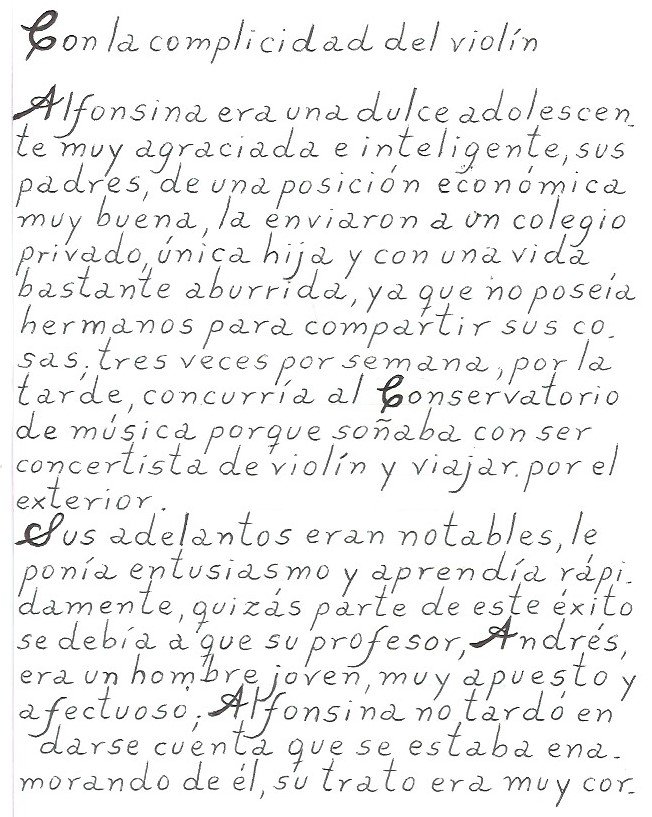 Con la complicidad del violín
Alfonsina era una dulce adolescen_
te muy agraciada e inteligente, sus
padres, de una posición económica
muy buena, la enviaron a un colegio
privado, única hija y con una vida
bastante aburrida, ya que no poseía
hermanos para compartir sus co_
sas; tres veces por semana, por la
tarde, concurría al Conservatorio
de música porque soñaba con ser
concertista de violín y viajar por el
exterior.
Sus adelantos eran notables, le
ponía entusiasmo y aprendía rápi_
damente, quizás parte de este éxito
se debía a que su profesor, Andrés,
era un hombre joven, muy apuesto y
afectuoso; Alfonsina no tardó en
darse cuenta que se estaba ena_
morando de él, su trato era muy cor_